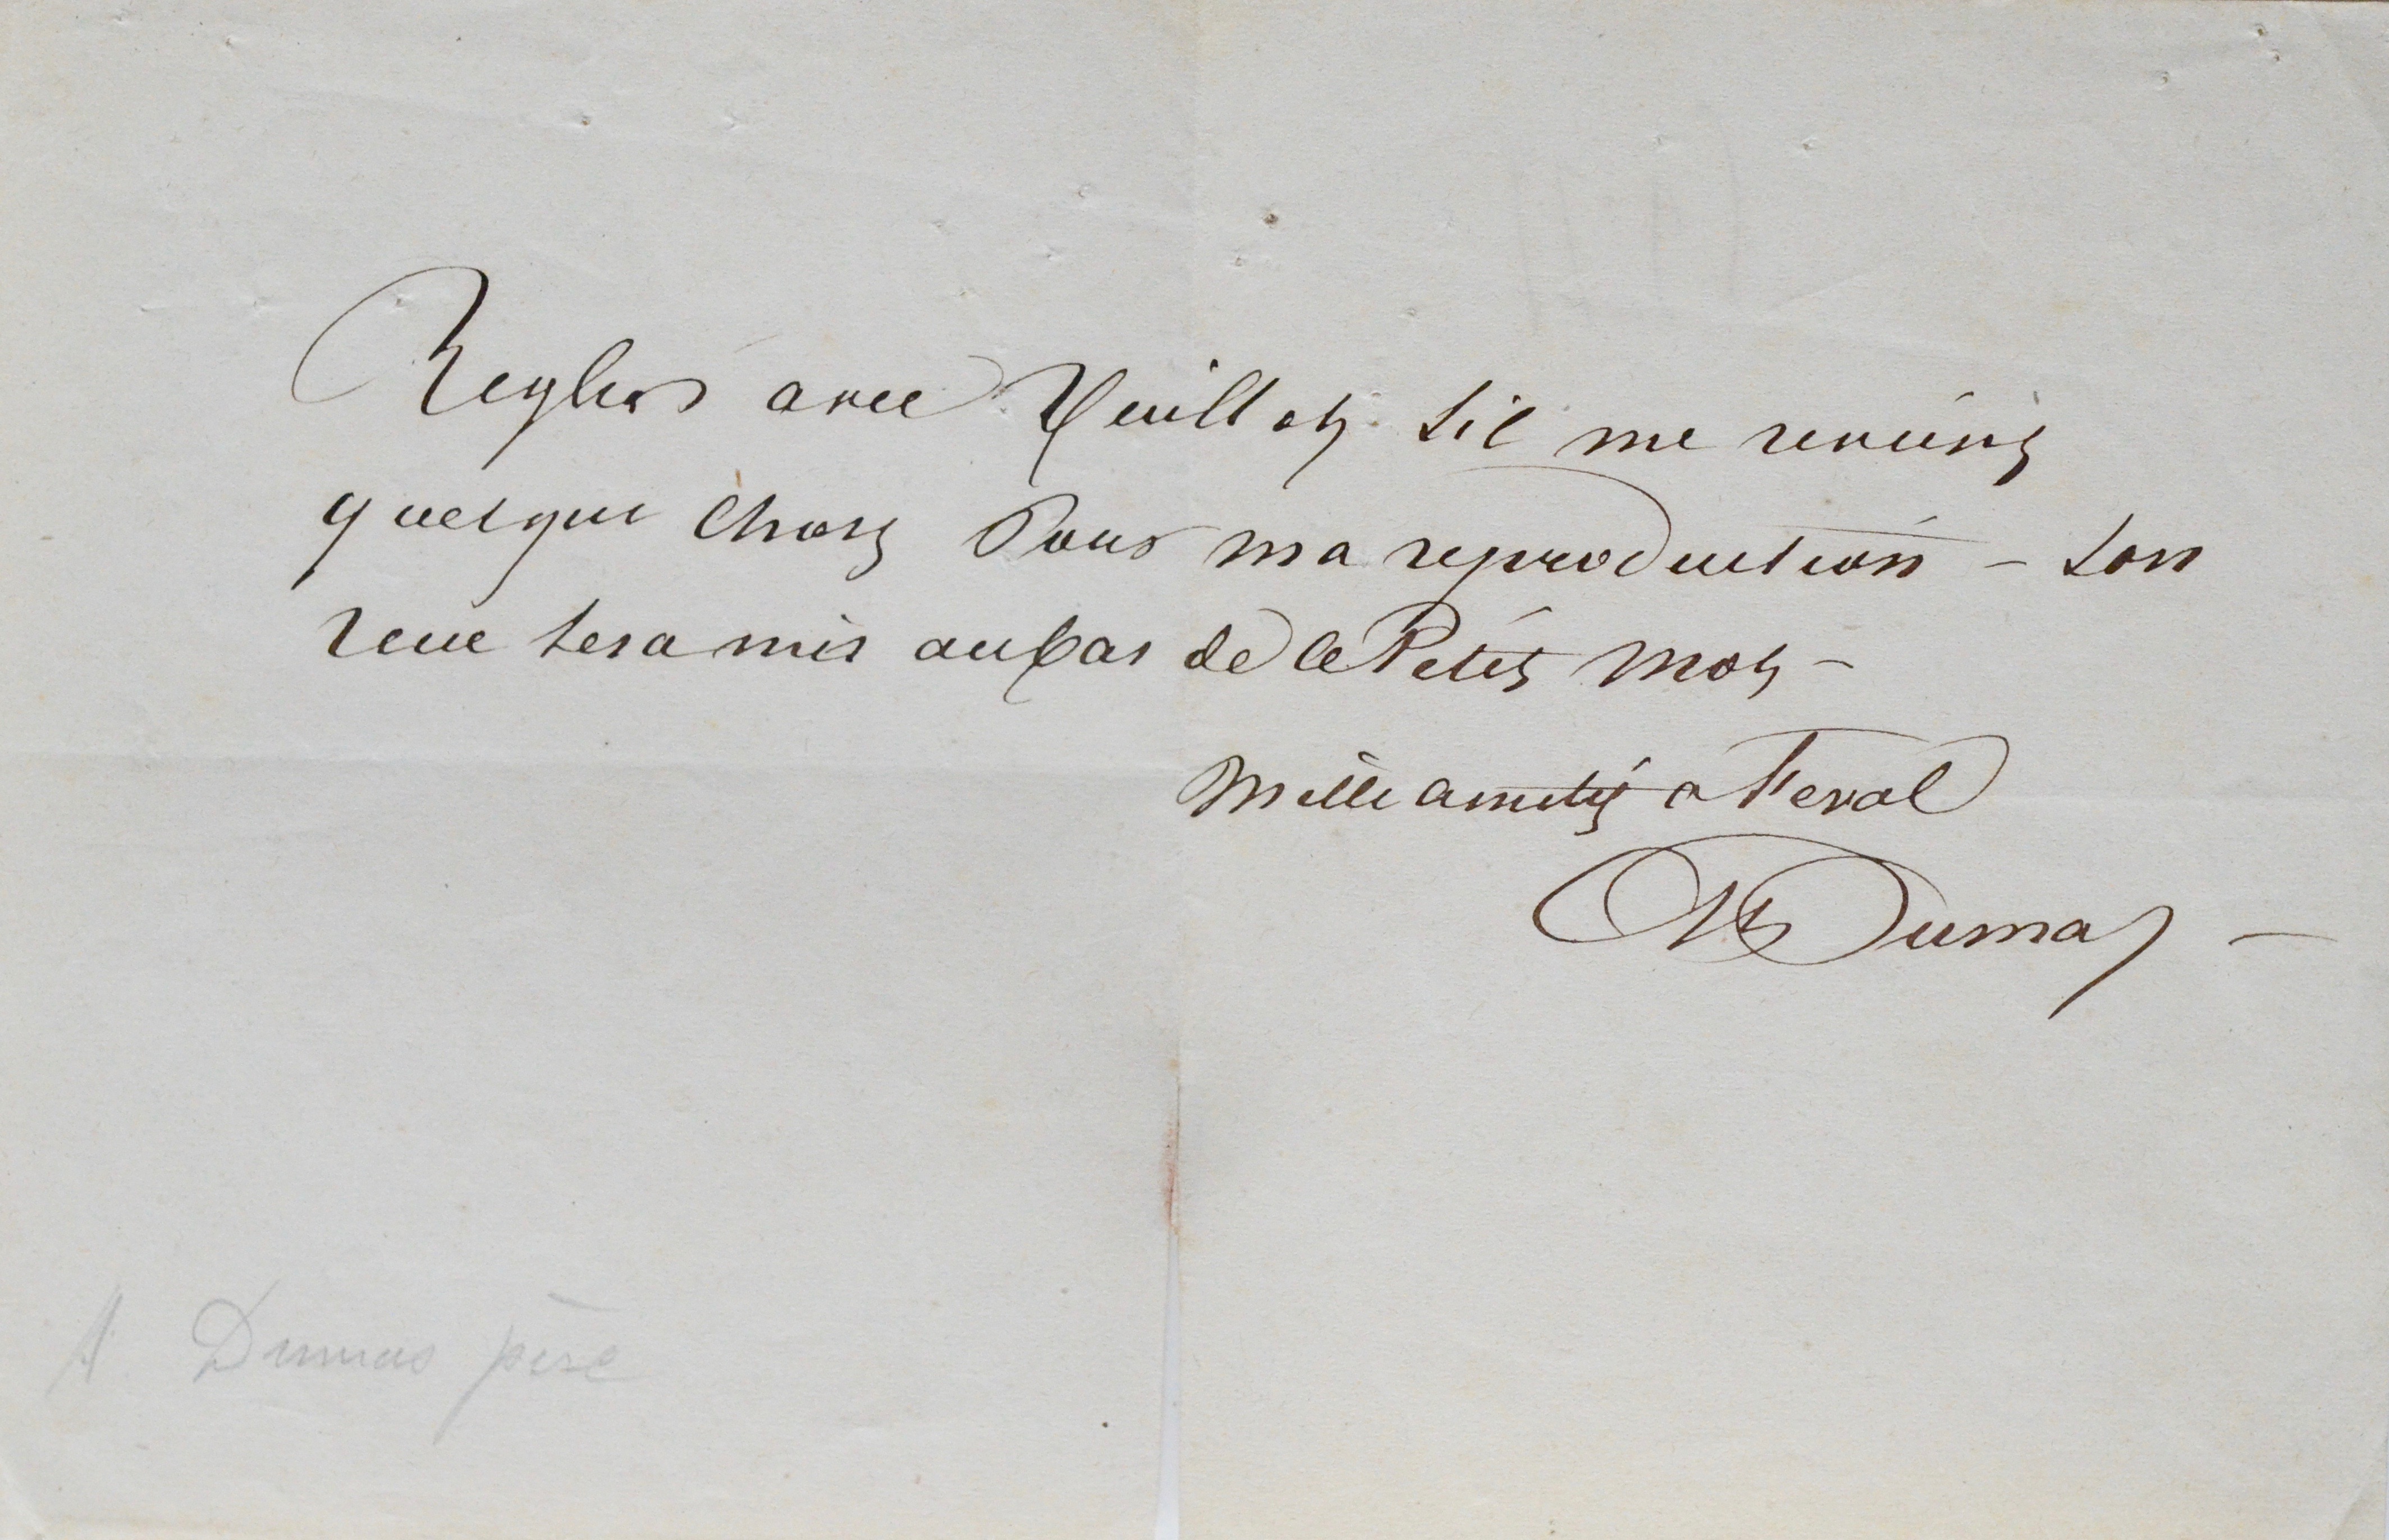 Regler avec Veuillot s'il me revient
quelque chose Pour ma reproduction – son
recu sera mis au bas de ce Petit mot –
Mille amities a Feval
Al Dumas –
A Dumas père